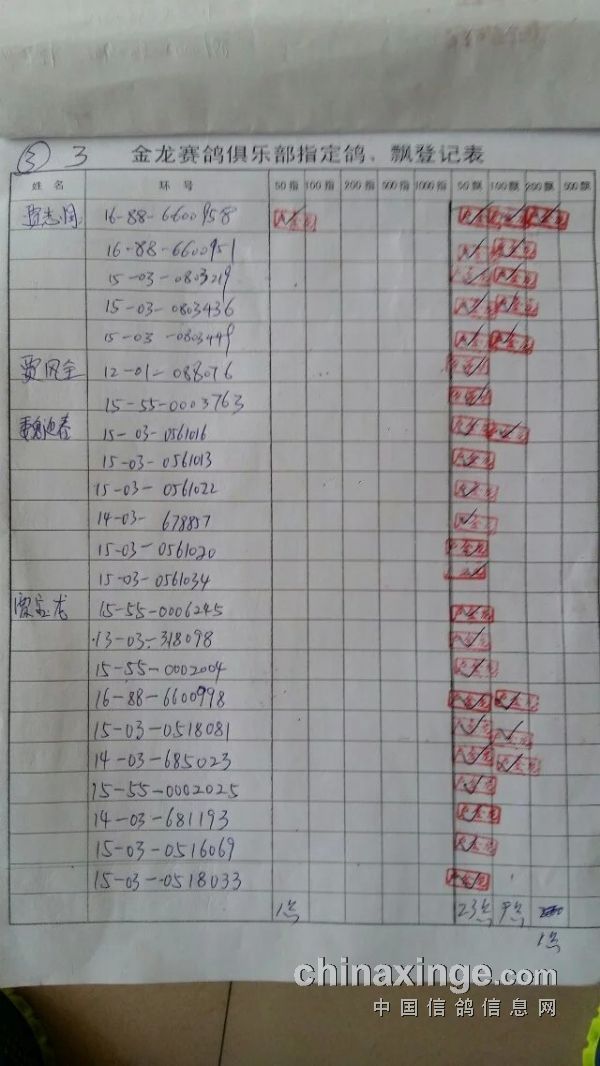 ③ 3 金龙赛鸽俱乐部指定鸽、飘登记表
姓名 环号 50指 100指 200指 500指 1000指 50飘 100飘 200飘 500飘
贾志国 16-88-6600958
16-88-6600951
15-03-0803219
15-03-0803436
15-03-0803449
贾凤全 12-01-088076
15-55-0003763
魏迎春 15-03-0561016
15-03-0561013
15-03-0561022
14-03-678857
15-03-0561020
15-03-0561034
15-55-0006245
13-03-318098
15-55-0002004
16-88-6600998
15-03-0518081
14-03-685023
15-55-0002025
14-03-681193
15-03-0516069
15-03-0518033
1羽 23羽 9羽
1羽
chinaxinge.com
中国信鸽信息网